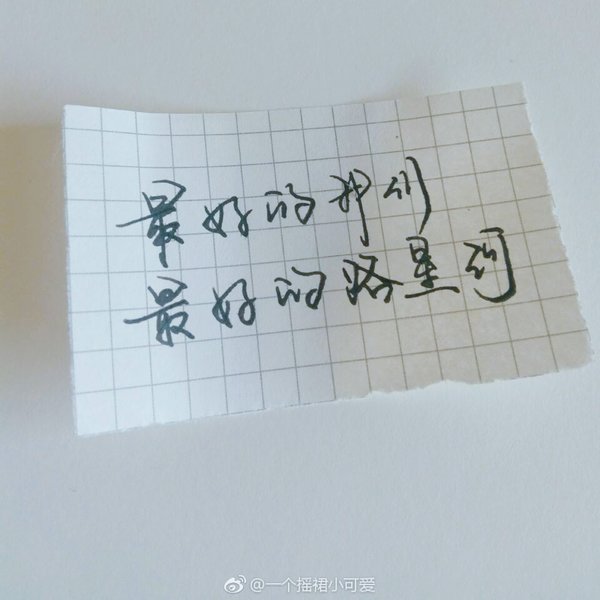 最好的我们
最好的路星河
@一个摇裙小可爱